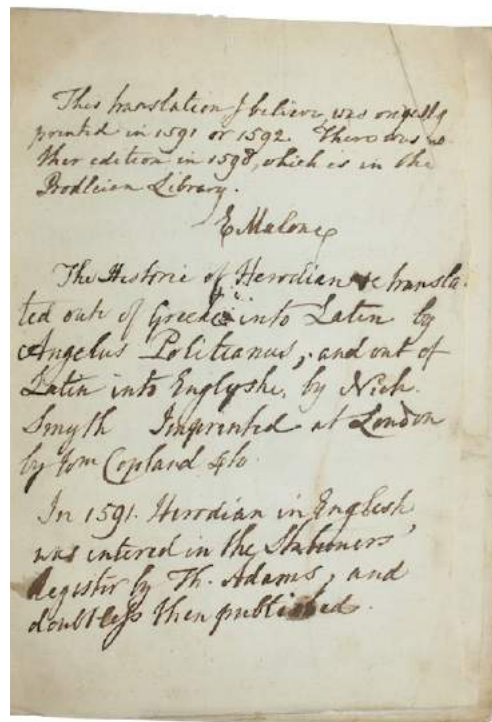 This translation I believe, was originally
printed in 1591 or 1592. There was no
ther edition in 1598, which is in the
Bodleian Library.
E Malone
The Historie of Herodian &c transla-
ted out of Greeke into Latin by
Angelus Politianus, and out of
Latin into Englyshe, by Nich.
Smyth Imprinted at London
by Copland 4to.
In 1591. Herodian in English
was intered in the Stationers'
Register by Th. Adams, and
doubtless then published.